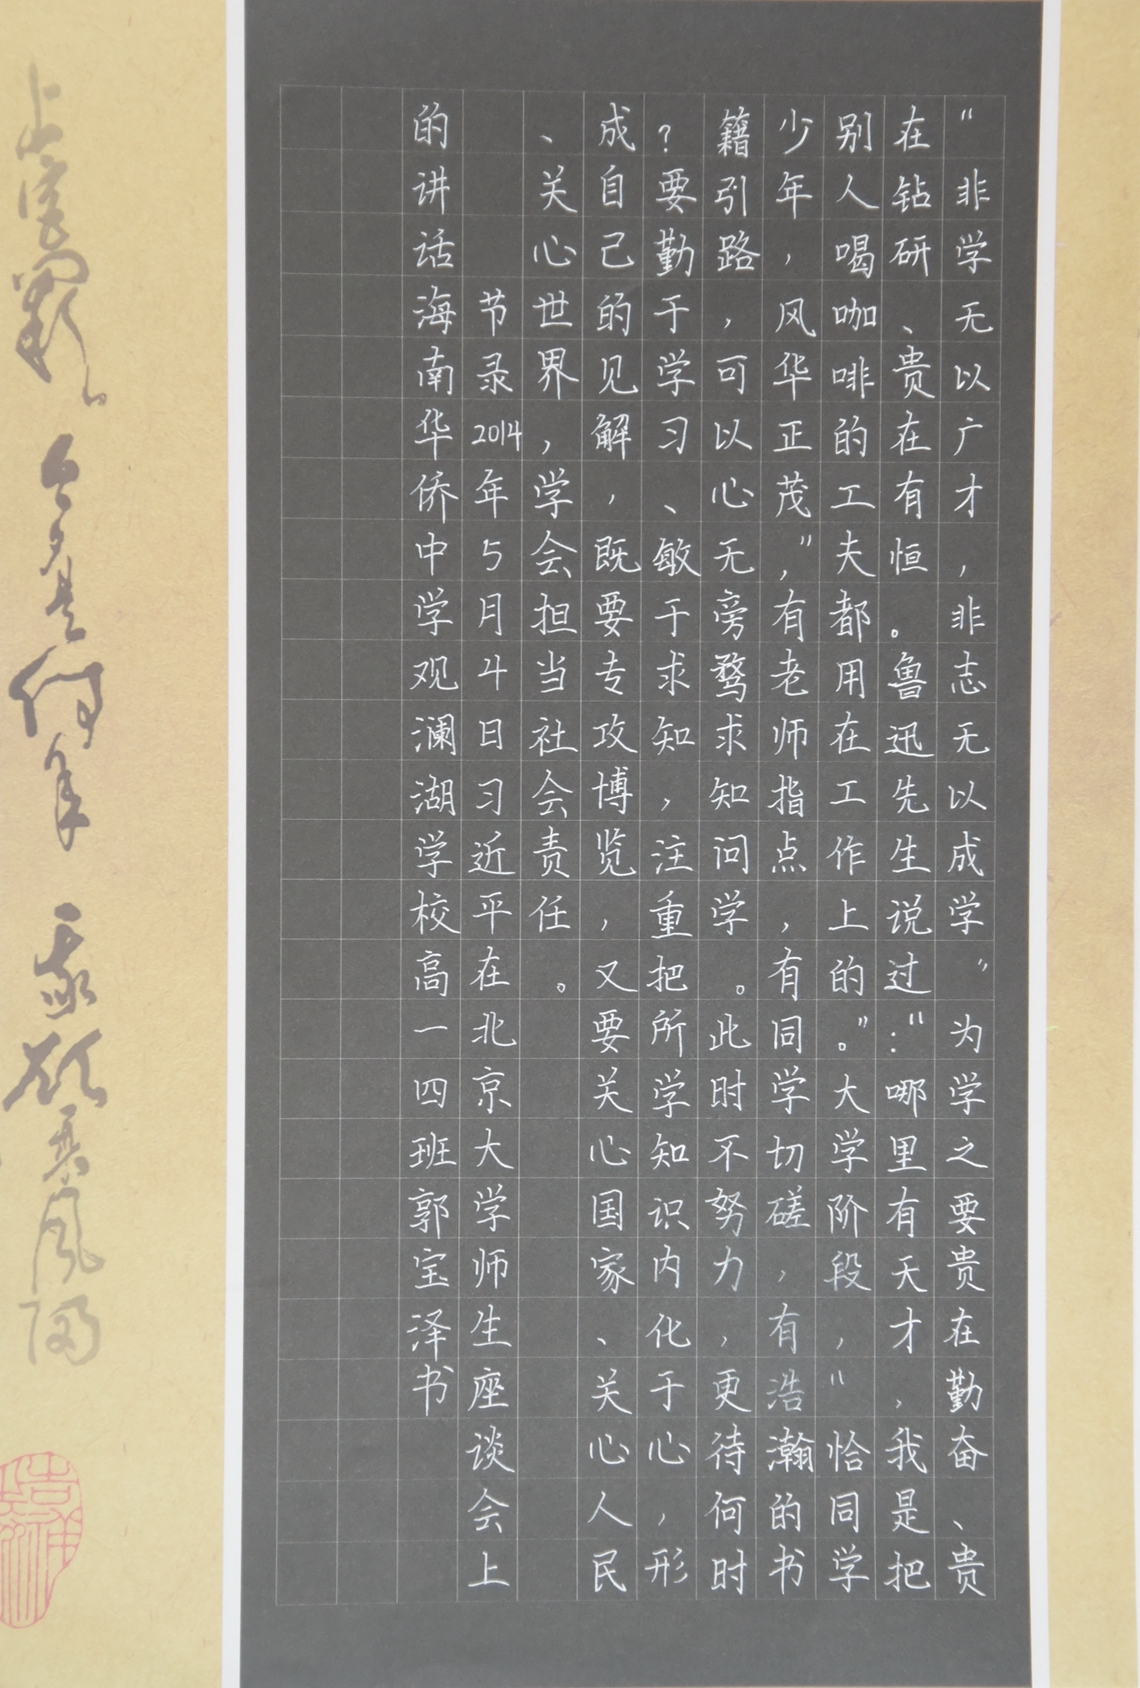 “非学无以广才，非志无以成学”为学之要贵在勤奋、贵
在钻研、贵在有恒。鲁迅先生说过：“哪里有天才，我是把
别人喝咖啡的工夫都用在工作上的。”大学阶段，“恰同学
少年，风华正茂”，有老师指点，有同学切磋，有浩瀚的书
籍引路，可以心无旁骛求知问学。此时不努力，更待何时
？要勤于学习、敏于求知，注重把所学知识内化于心，形
成自己的见解，既要专攻博览，又要关心国家、关心人民
、关心世界，学会担当社会责任。
节录2014年5月4日习近平在北京大学师生座谈会上
的讲话海南华侨中学观澜湖学校高一四班郭宝泽书
今夕是何年 我欲乘风归